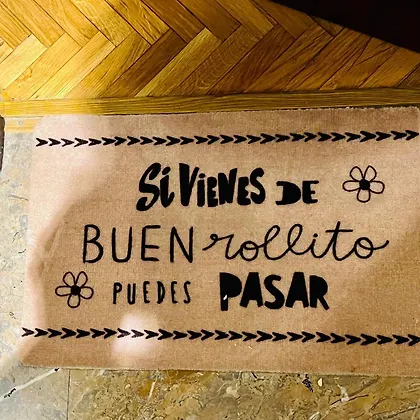 Si VIENES DE
BUEN rollito
PUEDES PASAR